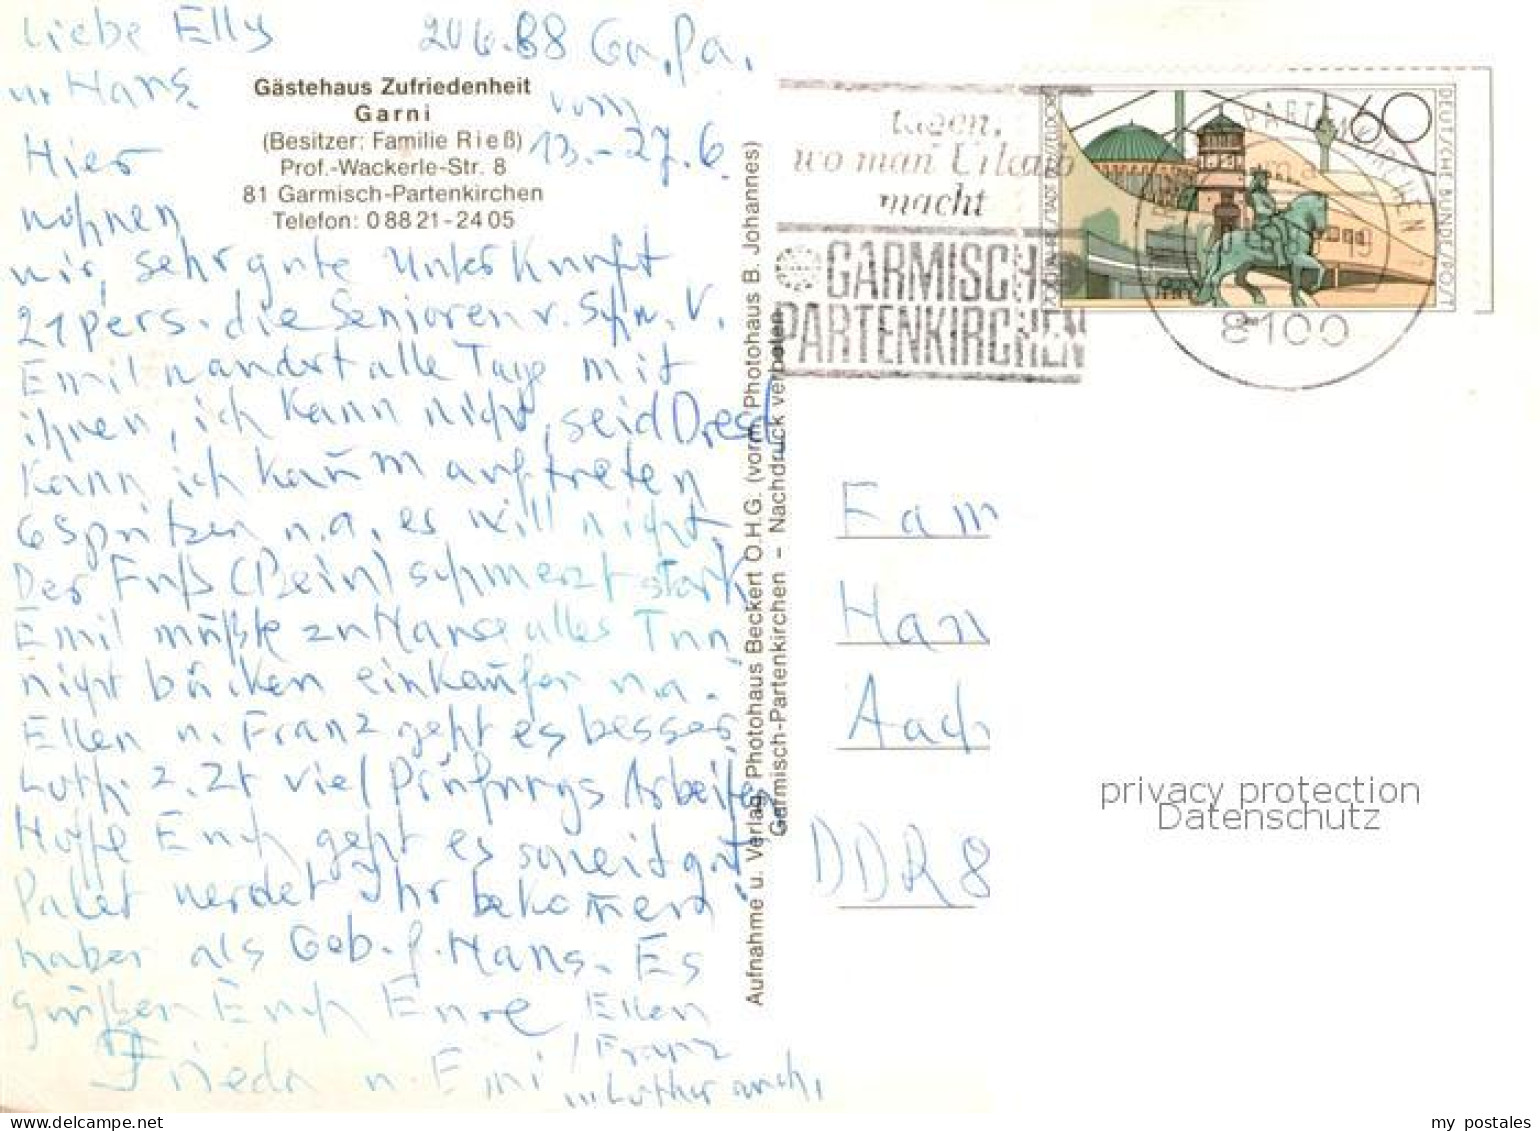 Liebe Elly
20.6.88 Ga. Pa.
u. Hans.
Gästehaus Zufriedenheit
Garni
(Besitzer: Familie Rieß)
Prof.-Wackerle-Str. 8
81 Garmisch-Partenkirchen
Telefon: 0 88 21 - 24 05
vom
13.-27.6.
Hier
wohnen
wir, sehr gute Unterkunft
21 pers. die Senioren v. Schw. V.
Emil wandert alle Tage mit
ihnen, ich kann nicht, seid Dresd.
kann ich kaum auftreten
6 Spritzen u.a. es will nicht.
Der Fuß (Bein) schmerzt stark
Emil müßte zu Hause alles Tun
nicht bücken einkaufen u.a.
Ellen u. Franz geht es besser
Luth. z. Zt viel Prüfungs Arbeiten
Hoffe Euch geht es soweit gut,
Paket werdet Ihr bekommen
haben als Geb. f. Hans. Es
grüßen Euch Eure Ellen
Frieda u. Emil Franz
u. Luther auch.
Aufnahme u. Verlag: Photohaus Beckert O.H.G. (vorm. Photohaus B. Johannes)
Garmisch-Partenkirchen - Nachdruck verboten
tagen,
wo man Urlaub
macht
GARMISCH
PARTENKIRCHEN
60
DEUTSCHE BUNDESPOST
PARTENKIRCHEN
8100
Fam
Han
Aach
DDR 8
privacy protection
Datenschutz
my postales